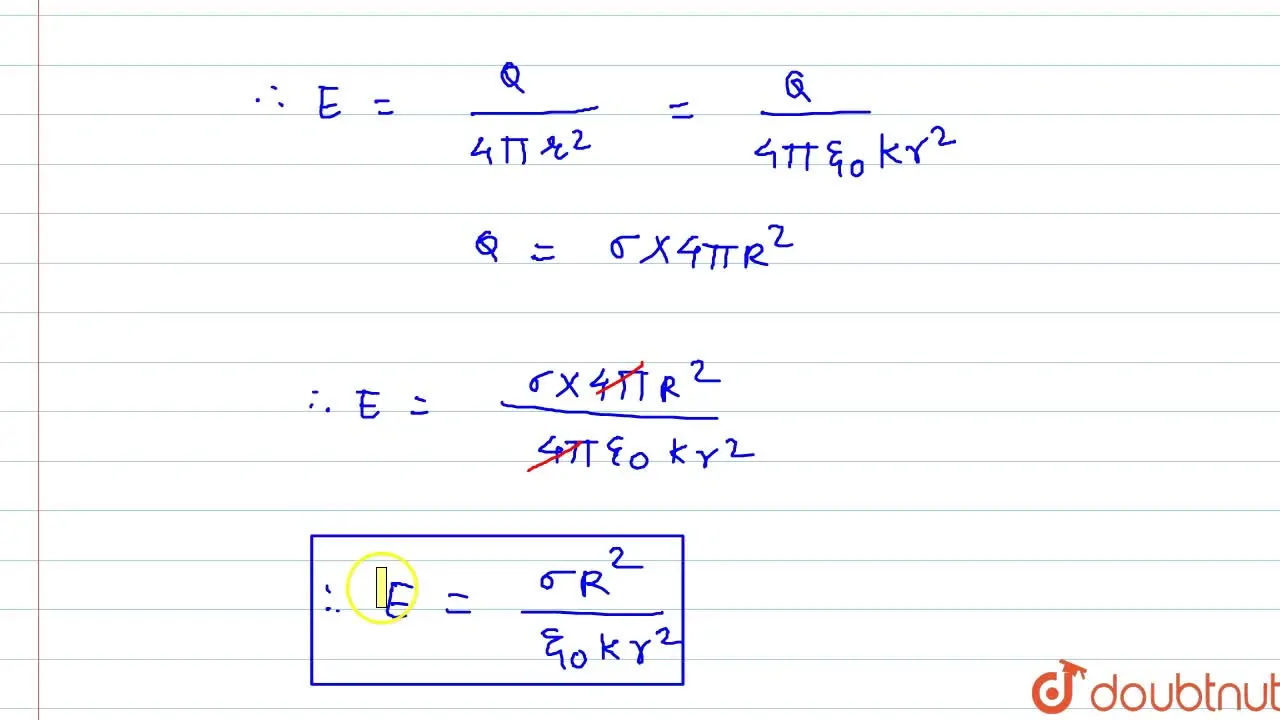 ∴ E = Q / 4πr² = Q / 4πε₀kr²
Q = σ×4πR²
∴ E = σ×4πR² / 4πε₀kr²
∴ E = σR² / ε₀kr²
doubtnut